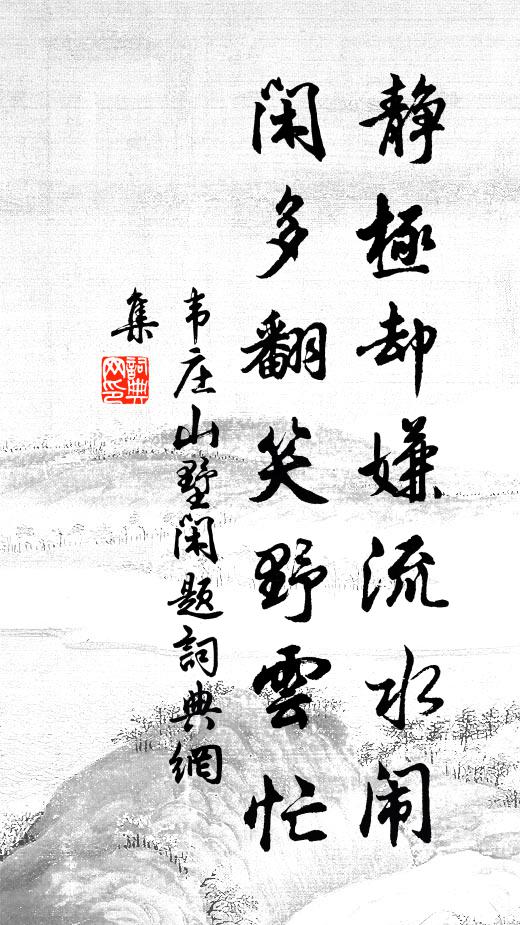 静極却嫌流水闹
闲多翻笑野雲忙
韦庄山墅闲题詞典網
集
詞典网印